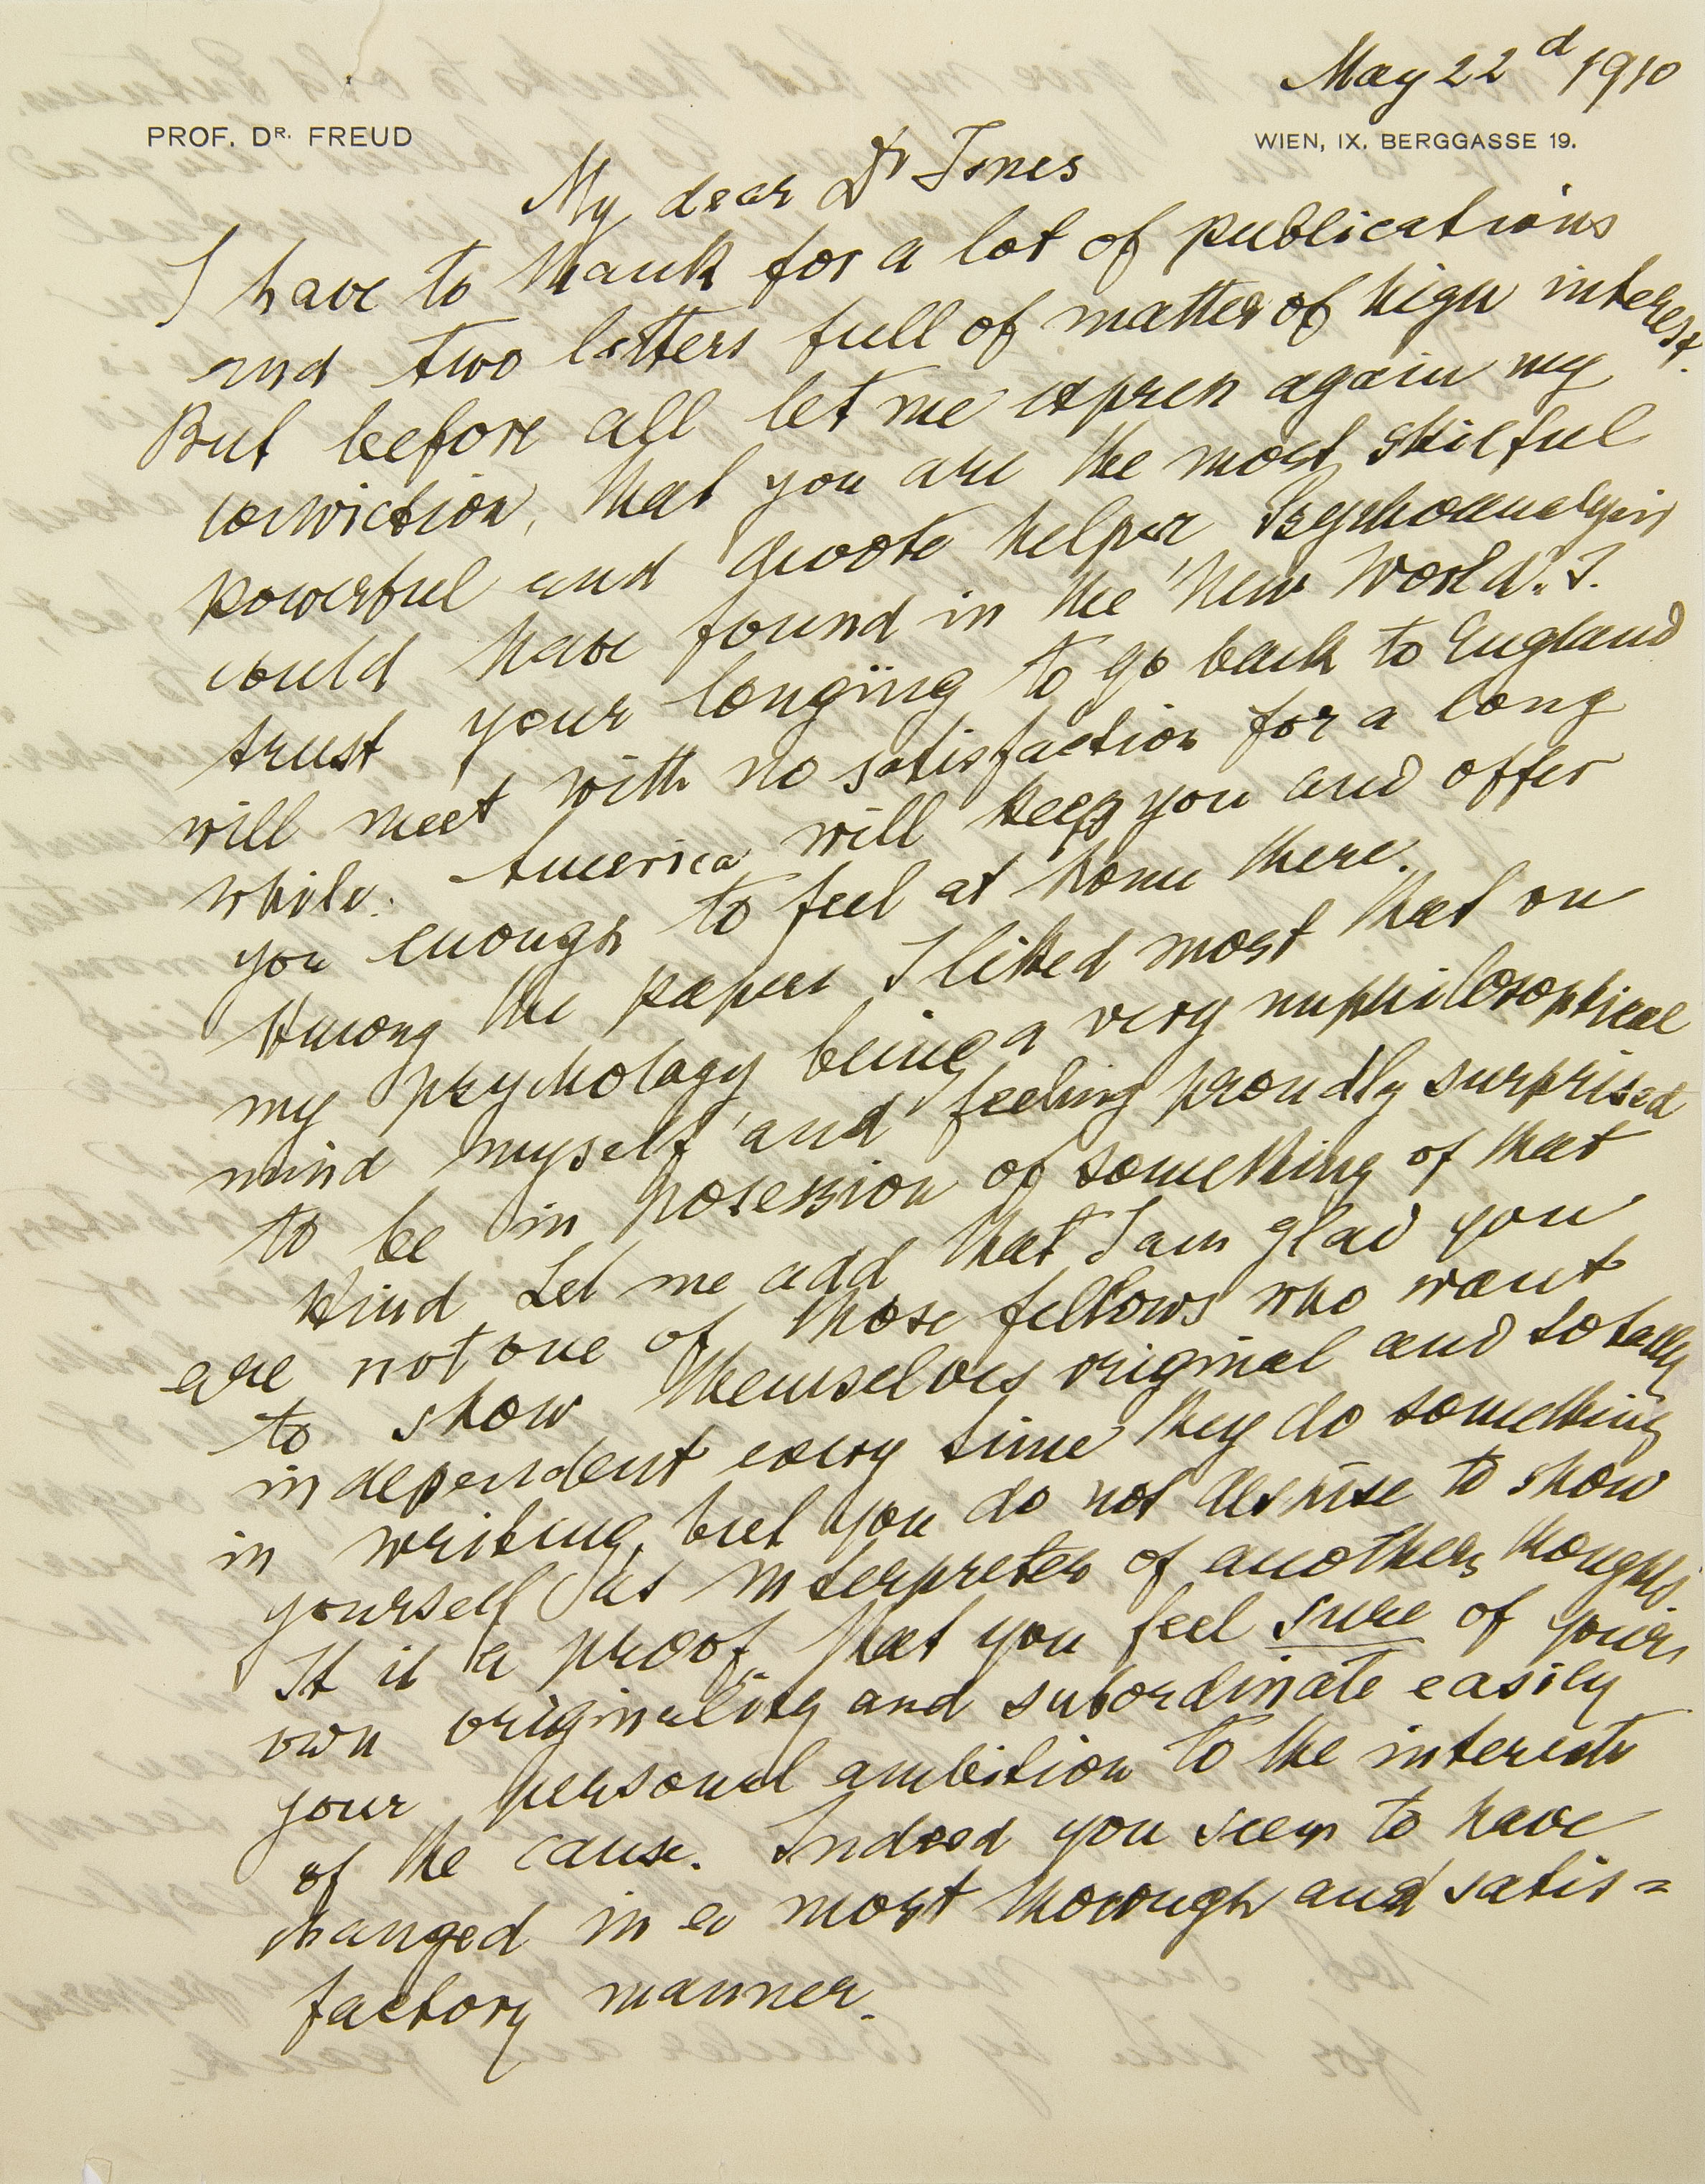 May 22d 1910
PROF. DR. FREUD
WIEN, IX. BERGGASSE 19.
My dear Dr Jones
I have to thank for a lot of publications
and two letters full of matter of high interest.
But before all let me express again my
conviction, that you are the most skilful
powerful and helper Psychoanalysis
could have found in the "New World". I
trust your longing to go back to England
will meet with no satisfaction for a long
while. America will keep you and offer
you enough to feel at home there.
Among the papers I liked most that on
my psychology being a very unphilosophical
mind myself and feeling proudly surprised
to be in posession of something of that
kind Let me add that I am glad you
are not one of those fellows who want
to show themselves original and totally
independent every time they do something
in writing, but you do not despise to show
yourself as interpreter of anothers thoughts
It is a proof that you feel sure of your
own originality and subordinate easily
your personal ambition to the interests
of the cause. Indeed you seem to have
changed in a most thorough and satis=
factory manner.